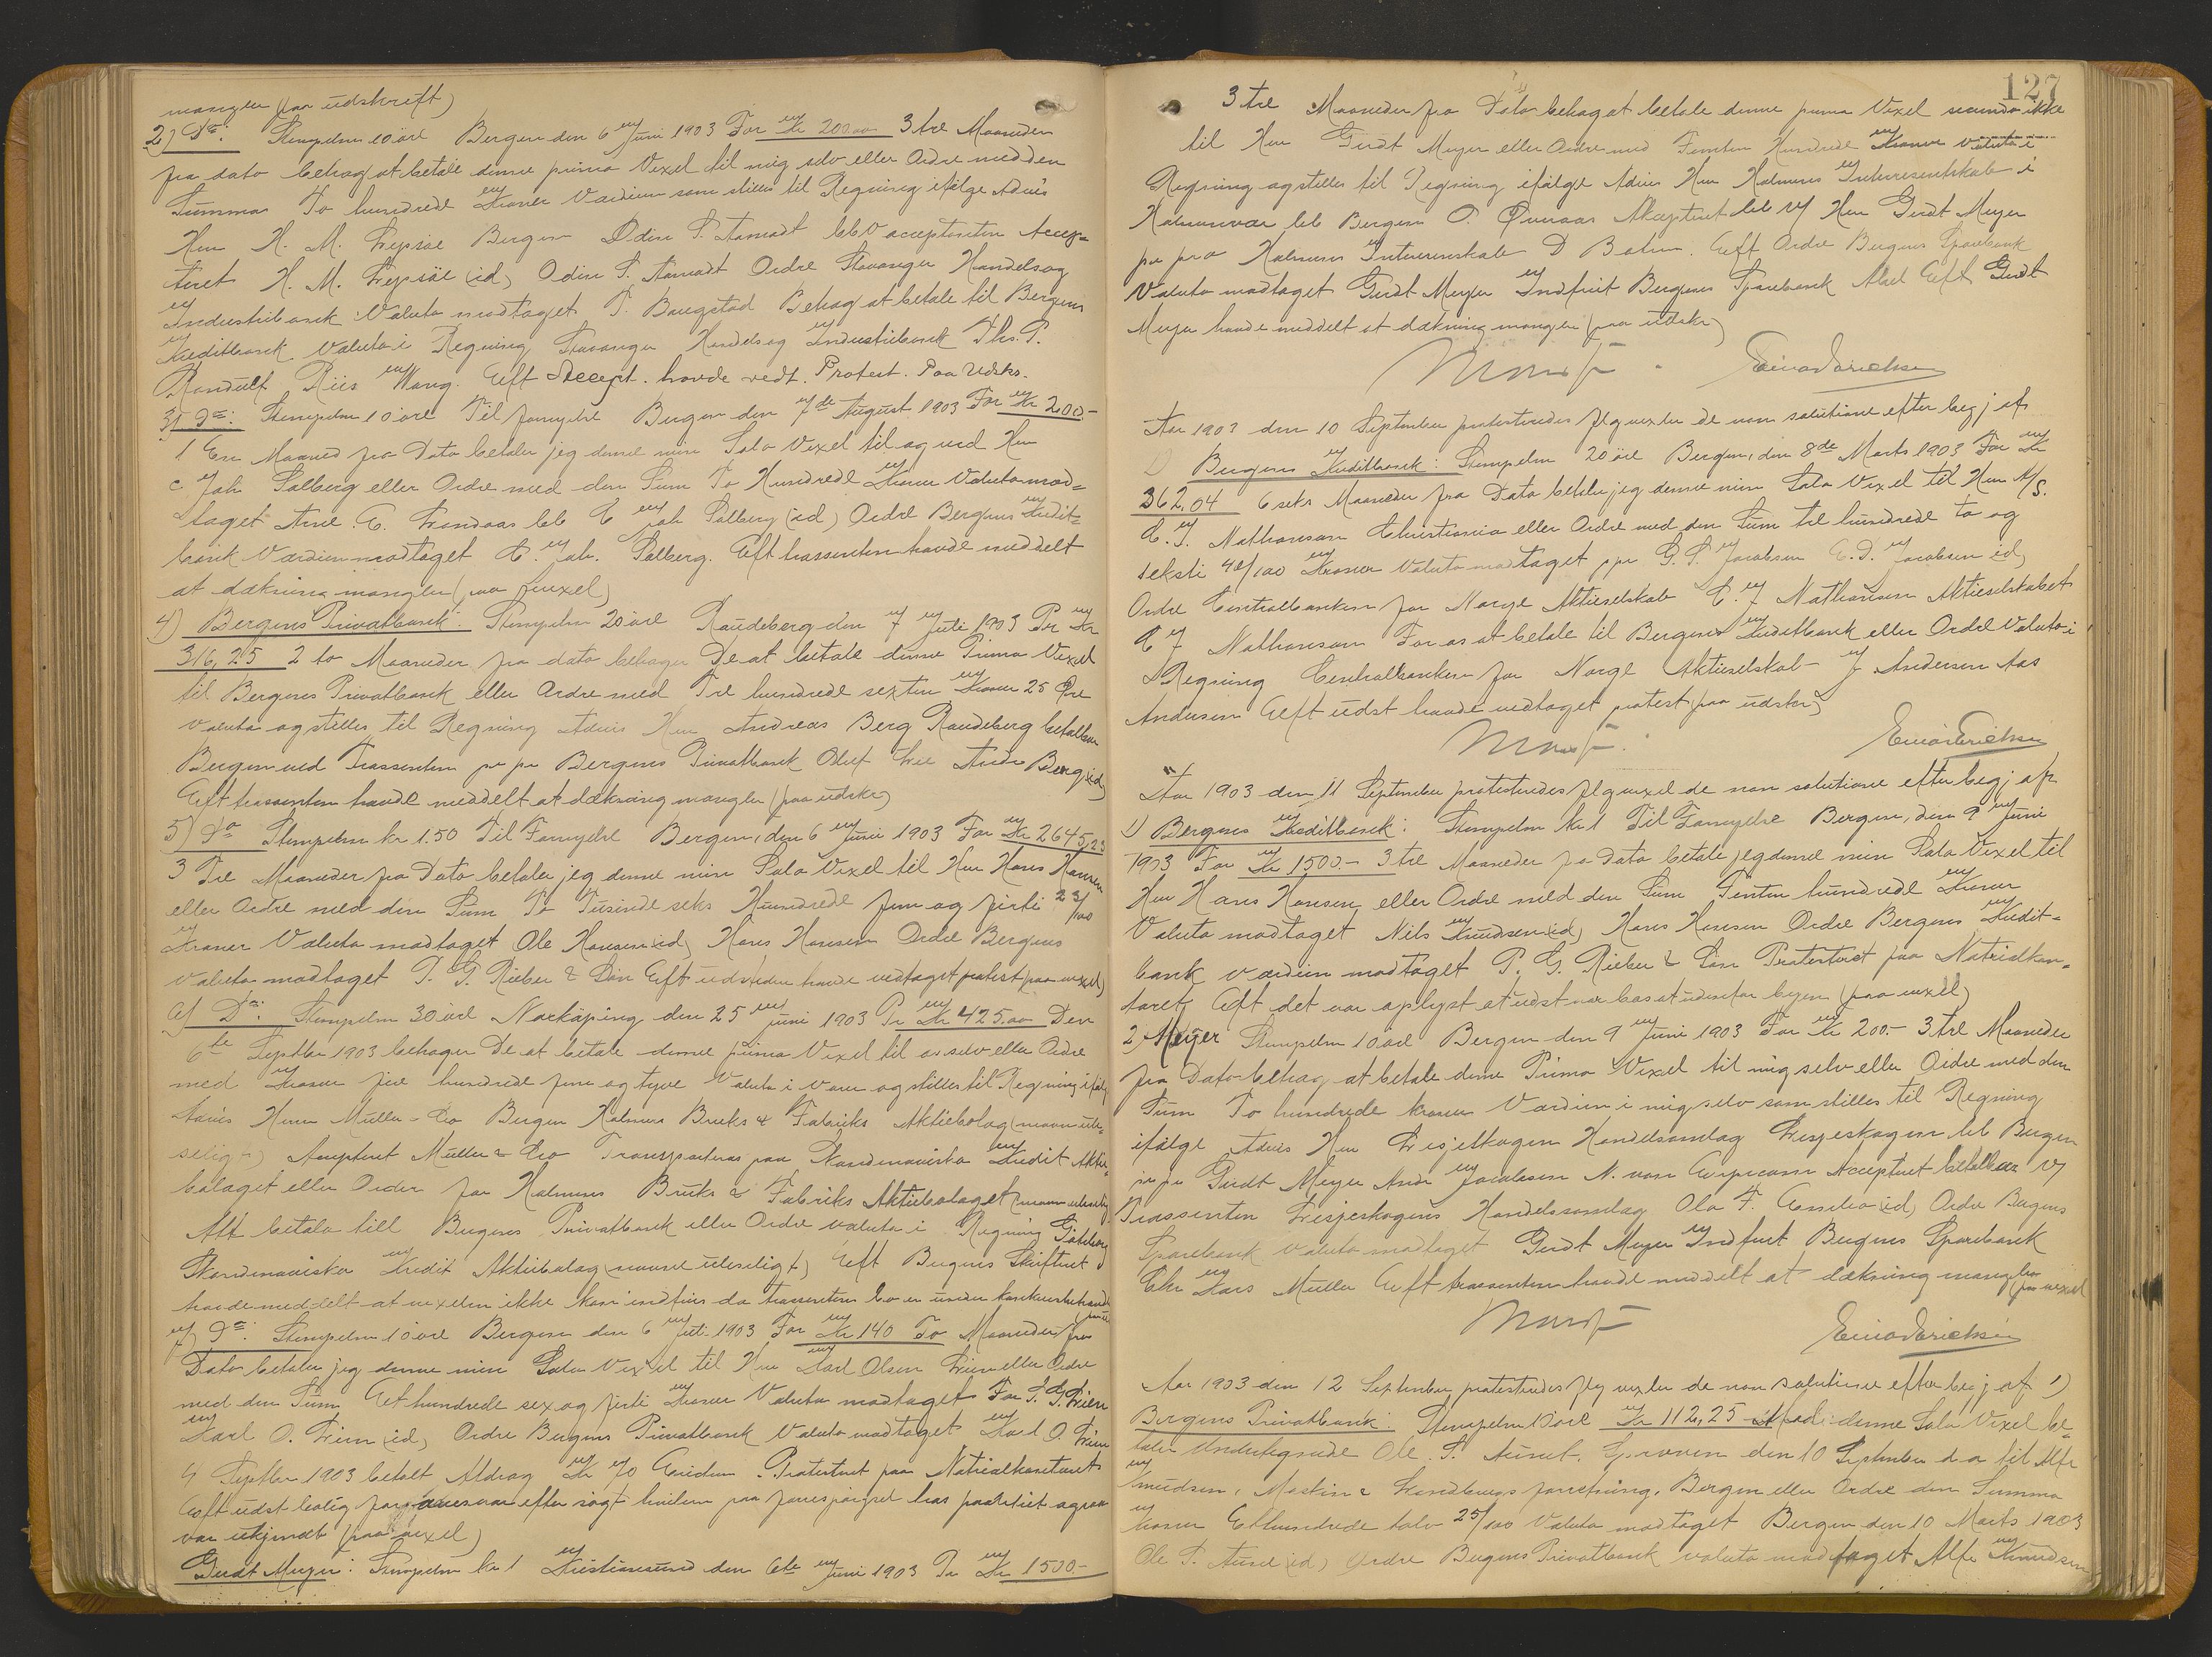 mangler (paa udskrift)
2) Do: Stempelm 10 öre Bergen den 6 Juni 1903 For Kr 200.00 3 tre Maaneder
fra dato behag at betale denne prima Vexel til mig selv eller Ordre med den
Summa To hundrede Kroner Værdien som stilles til Regning ifølge Advis
Herr H. M. Bergen Odin S. acceptanten Accep=
teret H. M. (id) Odin S. Ordre Stavanger Handels og
Industribank Valuta modtaget T. Baugstad Behag at betale til Bergens
Kreditbank Valuta i Regning Stavanger Handels og Industribank Ths. P.
Randulf Riis Wang. Eft Accept. havde vedt. Protest. Paa Udskr.
3) Do: Stempelm 10 öre Til fornyelse Bergen den 7de August 1903 For Kr 200.-
1 En Maaned fra Dato betaler jeg denne min Sola Vexel til og ved Herr
C Joh Solberg eller Ordre med den Sum To Hundrede Kroner Valuta mod=
taget Arne E. C Joh Solberg (id) Ordre Bergens Kredit=
bank Værdien modtaget C. Joh. Solberg. Eft trassenten havde meddelt
at dækning mangler (paa vexel)
4) Bergens Privatbank: Stempelm 20 öre Raudeberg den 7 Juli 1903 For Kr
316,25 2 to Maaneder fra dato behager De at betale denne Prima Vexel
til Bergens Privatbank eller Ordre med Tre hundrede sexten Kroner 25 Øre
Valuta og stilles til Regning Advis Herr Andreas Berg Raudeberg betalbar
Bergen ved Trassenten pr pr Bergens Privatbank Oluf Andr Berg (id)
Eft trassenten havde meddelt at dækning mangler (paa udskr)
5) Do Stempelm kr 1.50 Til Fornyelse Bergen, den 6 Juni 1903 For Kr 2645,23
3 Tre Maaneder fra Dato betaler jeg denne min Sola Vexel til Herr Hans Hansen
eller Ordre med den Sum To Tusinde seks Hundrede fem og firti 23/100
Kroner Valuta modtaget Ole Hansen (id) Hans Hansen Ordre Bergens
Valuta modtaget P. G. Rieber & Søn Eft udstederen havde vedtaget protest (paa vexel)
6) Do: Stempelm 30 öre Norköping den 25 Juni 1903 Pr Kr 425.00 Den
6te Septbr 1903 behager De at betale denne prima Vexel til os selv eller Ordre
med Kroner fire hundrede fem og tyve Valuta i varer og stilles til Regning ifølg
Advis Herrn Müller & Co Bergen Holmens Bruks & Fabriks Aktiebolag (navn ulæ=
seligt) Accepteret Müller & Co Transporteras paa Skandinaviska Kredit Aktie=
bolaget eller Order for Holmens Bruks & Fabriks Aktiebolaget (navn ulæselig
Att betala till Bergens Privatbank eller Ordre valuta i Regning Göteborg
Skandinaviska Kredit Aktiebolag (navne ulæseligt) Eft Bergens Skifteret
havde meddelt at vexelen ikke kan indfries da trassenten bo er under konkursbehand
7) Do: Stempelm 10 öre Bergen den 6 Juli 1903 For Kr 140 To Maaneder fra
Dato betaler jeg denne min Sola Vexel til Herr Karl Olsen eller Ordre
med den Sum Et hundrede sex og firti Kroner Valuta modtaget For
Karl O. (id) Ordre Bergens Privatbank Valuta modtaget Karl O.
4 Septbr 1903 betalt Afdrag Kr 70 Protesteret paa Notrialkontoret
Eft udst bolig forgjæves var efter søgt hvilken paa forespørgsel hos politiet ogsaa
var ukjendt (paa vexel)
Gerdt Meyer: Stempelm kr 1 Kristiansund den 6te Juni 1903 Pr Kr 1500.-
127
3 tre Maaneder fra Dato behag at betale denne prima Vexel secunda ikke
til Herr Gerdt Meyer eller Ordre med Femten Hundrede Kroner valuta i
Regning og stilles til Regning ifølge Advis Herr Holmens Interessentskab i
Bergen O. Accepteret Herr Gerdt Meyer
pr pro Holmens Interessentskab D Eft Ordre Bergens Sparebank
Valuta modtaget Gerdt Meyer Indfriet Bergens Sparebank Eft Gerdt
Meyer havde meddelt at dækning mangler (paa udskr)
Einar Erichsen
Aar 1903 den 10 September protesteredes flg vexler de non solutione efter begj af
1) Bergens Kreditbank: Stempelm 20 öre Bergen, den 8de Marts 1903 For Kr
362,04 6 seks Maaneder fra Dato betaler jeg denne min Sola Vexel til Herr A/S.
C. J. Nathansen Christiania eller Ordre med den Sum tre hundrede to og
seksti 4/100 Kroner Valuta modtaget ppr G. S. Jacobsen E. D. Jacobsen id)
Ordre Centralbanken for Norge Aktieselskab C. J Nathansen Aktieselskabet
C J Nathansen For os at betale til Bergens Kreditbank eller Ordre Valuta i
Regning Centralbanken for Norge Aktieselskab J Andersen Aas
Andersen Eft udst havde vedtaget protest (paa udskr)
Einar Erichsen
Aar 1903 den 11 September protesteredes flg vexel de non solutione efter begj af
1) Bergens Kreditbank: Stempelm kr 1 Til Fornyelse Bergen, den 9 Juni
1903 For Kr 1500.- 3 tre Maaneder fra Dato betaler jeg denne min Sola Vexel til
Herr Hans Hansen eller Ordre med den Sum Femten hundrede Kroner
Valuta modtaget Nils Knudsen (id) Hans Hansen Ordre Bergens Kredit=
bank Værdien modtaget P. G. Rieber & Søn Protesteret paa Notrialkon=
toret Eft det var oplyst at udst var bosat udenfor byen (paa vexel)
2) Meyer Stempelm 10 öre Bergen den 9 Juni 1903 For Kr 200.- 3 tre Maaneder
fra Dato behag at betale denne Prima Vexel til mig selv eller Ordre med den
Sum To hundrede kroner Værdien i mig selv som stilles til Regning
ifølge Advis Herr Handelsamlag Bergen
pr pr Gerdt Meyer Andr Jacobsen N. von Accepteret betalbar v/
Trassenten Handelssamlag Ola F. (id) Ordre Bergens
Sparebank Valuta modtaget Gerdt Meyer Indfriet Bergens Sparebank
Chr Lars Müller Eft trassenten havde meddelt at dækning mangler (paa vexel
Einar Erichsen
Aar 1903 den 12 September protesteredes flg vexler de non solutione efter begj af 1)
Bergens Privatbank: Stempelm 10 öre Kr 112,25 Mod denne Sola Vexel be=
taler Undertegnede Ole S. den 10 September d a til Alfr
Knudsen, Maskin & Landbrugs forretning, Bergen eller Ordre den Summa
Kroner Et hundrede tolv 25/100 Valuta modtaget Bergen den 10 Marts 1903
Ole S. (id) Ordre Bergens Privatbank valuta modtaget Alfr Knudsen